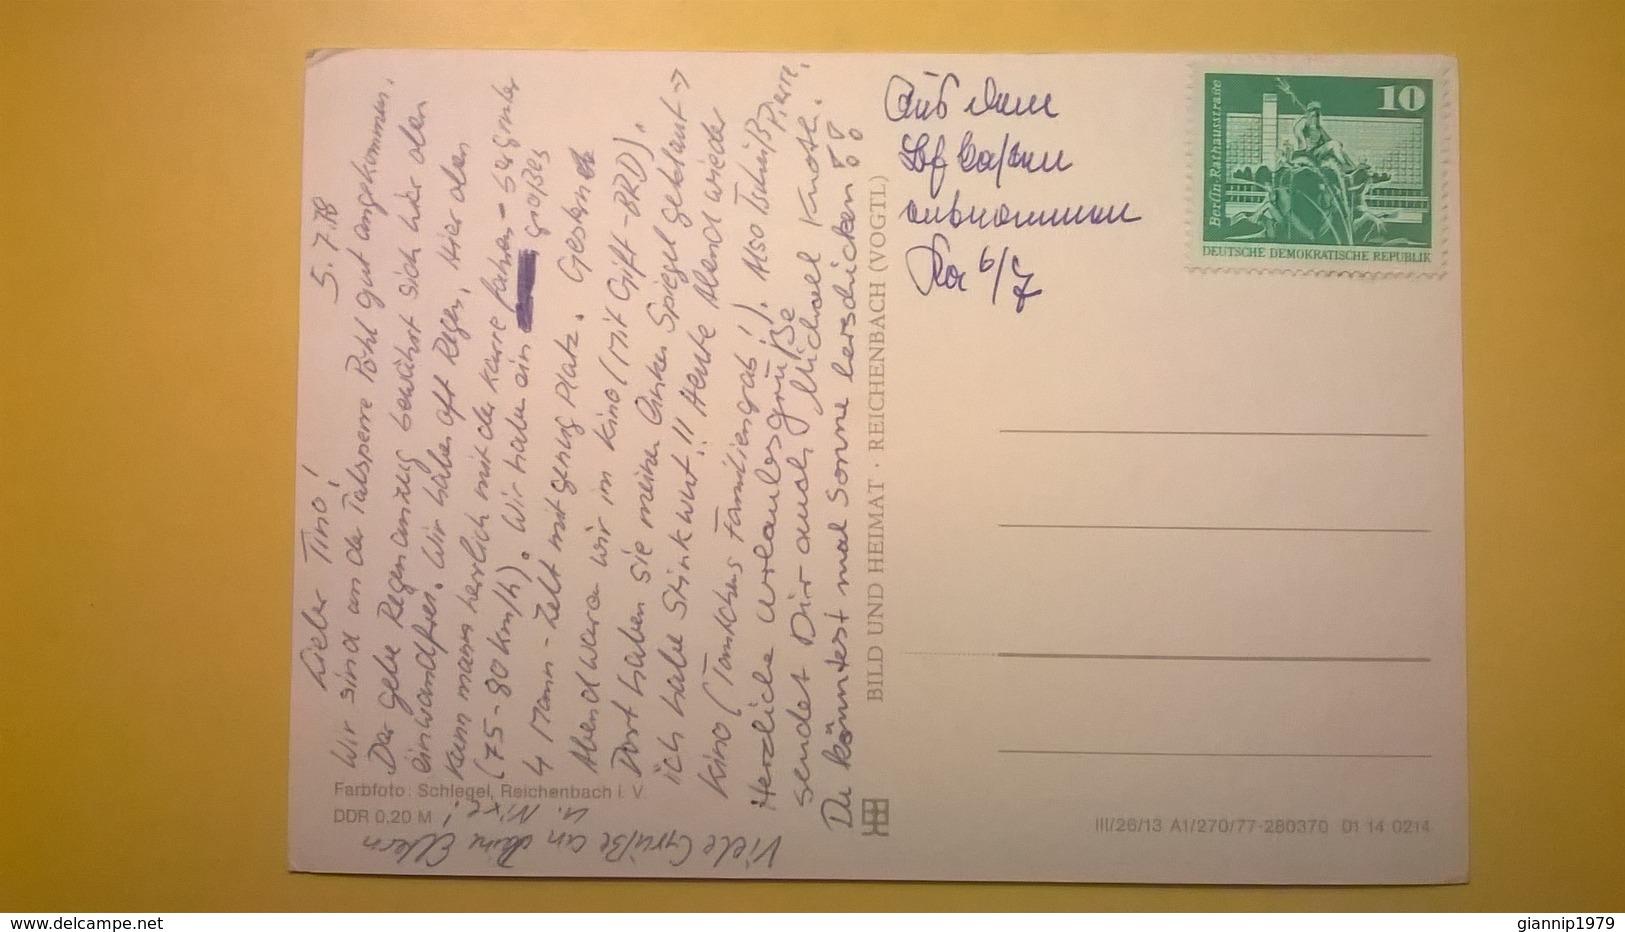 5.7.78
Lieber Tino!
Wir sind an der Talsperre Pöhl gut angekommen.
Der gelbe Regenanzug bewährt sich hier den
einwandfrei. Wir haben oft Regen. Hier den
kann mann herrlich mit der Karre fahren - Segenler
(75-80 km/h). Wir haben ein großes
4 Mann-Zelt mit genug Platz. Gestern
Abend waren wir im Kino (Mit Gift-BRD).
Dort haben sie meinen linken Spiegel geklaut →
ich habe Stinkwut!! Heute Abend wieder
Kino (Familiengrab!). Also Tschüß Pierre.
Herzliche Urlaubsgrüße
sendet Dir auch Michael Knoth.
Du könntest mal Sonne herschicken!!
Viele Grüße an Deine Eltern
u. Nixe!
Aus dem
Bfkasten
entnommen
6/7
10
Berlin-Rathausstraße
DEUTSCHE DEMOKRATISCHE REPUBLIK
BILD UND HEIMAT · REICHENBACH (VOGTL)
Farbfoto: Schlegel, Reichenbach i. V.
DDR 0,20 M
III/26/13 A1/270/77-280370 01 14 0214
www.delcampe.net
giannip1979